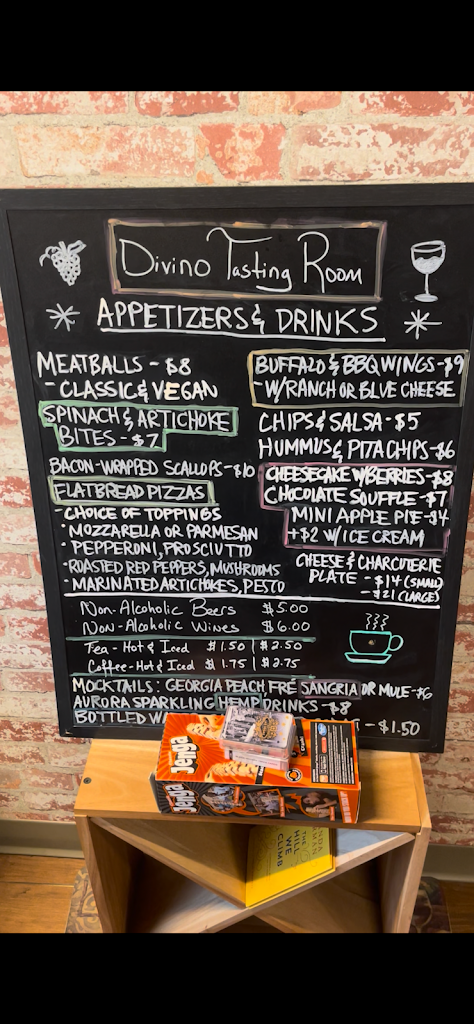 Divino Tasting Room
APPETIZERS & DRINKS
MEATBALLS - $8
- CLASSIC & VEGAN
SPINACH & ARTICHOKE
BITES - $7
BACON-WRAPPED SCALLOPS - $10
FLATBREAD PIZZAS
- CHOICE OF TOPPINGS
• MOZZARELLA OR PARMESAN
• PEPPERONI, PROSCIUTTO
• ROASTED RED PEPPERS, MUSHROOMS
• MARINATED ARTICHOKES, PESTO
BUFFALO & BBQ WINGS - $9
- W/RANCH OR BLUE CHEESE
CHIPS & SALSA - $5
HUMMUS & PITA CHIPS - $6
CHEESECAKE W/BERRIES - $8
CHOCOLATE SOUFFLE - $7
MINI APPLE PIE - $4
+$2 W/ ICE CREAM
CHEESE & CHARCUTERIE
PLATE - $14 (SMALL)
- $21 (LARGE)
Non-Alcoholic Beers $5.00
Non-Alcoholic Wines $6.00
Tea - Hot & Iced $1.50 | $2.50
Coffee - Hot & Iced $1.75 | $2.75
MOCKTAILS: GEORGIA PEACH FRÉ SANGRIA OR MULE - $6
AURORA SPARKLING HEMP DRINKS - $8
BOTTLED WA
- $1.50
Jenga
Jenga
THE
HILL
WE
CLIMB